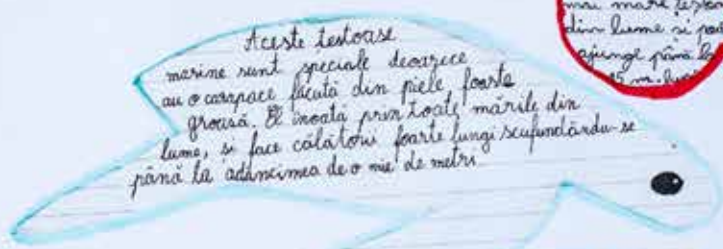 mai mare țestoa
din lume și poa
ajunge până la
15 m lun
Aceste țestoase
marine sunt speciale deoarece
au o carapace făcută din piele foarte
groasă. Ele inoată prin toate mările din
lume, și face călători foarte lungi scufundându-se
până la adâncimea de o mie de metri